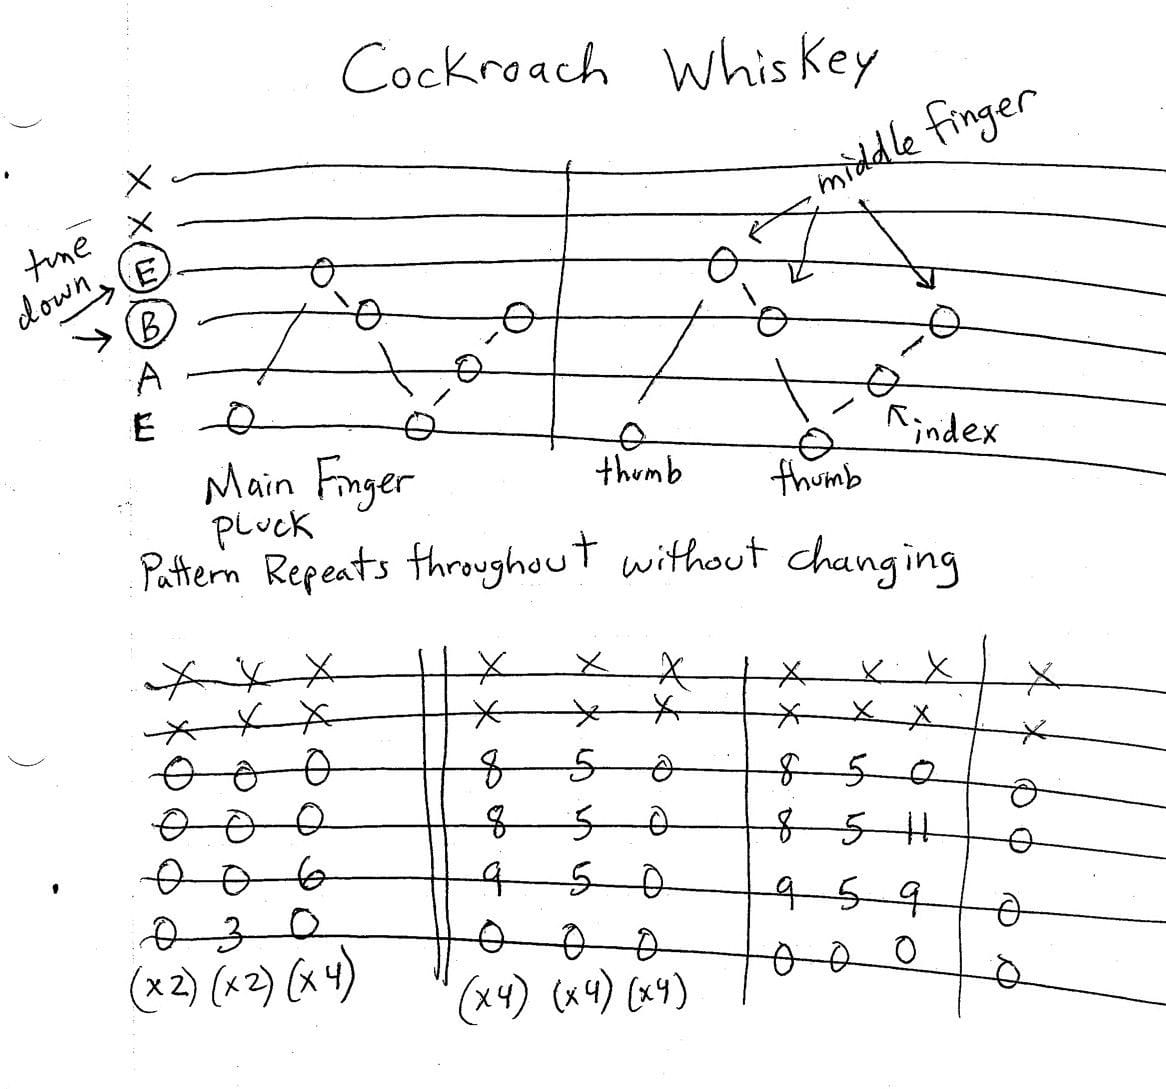 Cockroach Whiskey
middle finger
X
X
tune
down
E
B
A
E
index
thumb
thumb
Main Finger
Pluck
Pattern Repeats throughout without changing
X X X X X X X X X X
X X X X X X X X X X
0 0 0 8 5 0 8 5 0 0
0 0 0 8 5 0 8 5 11 0
0 0 6 9 5 0 9 5 9 0
0 3 0 0 0 0 0 0 0 0
(x2) (x2) (x4) (x4) (x4) (x4)